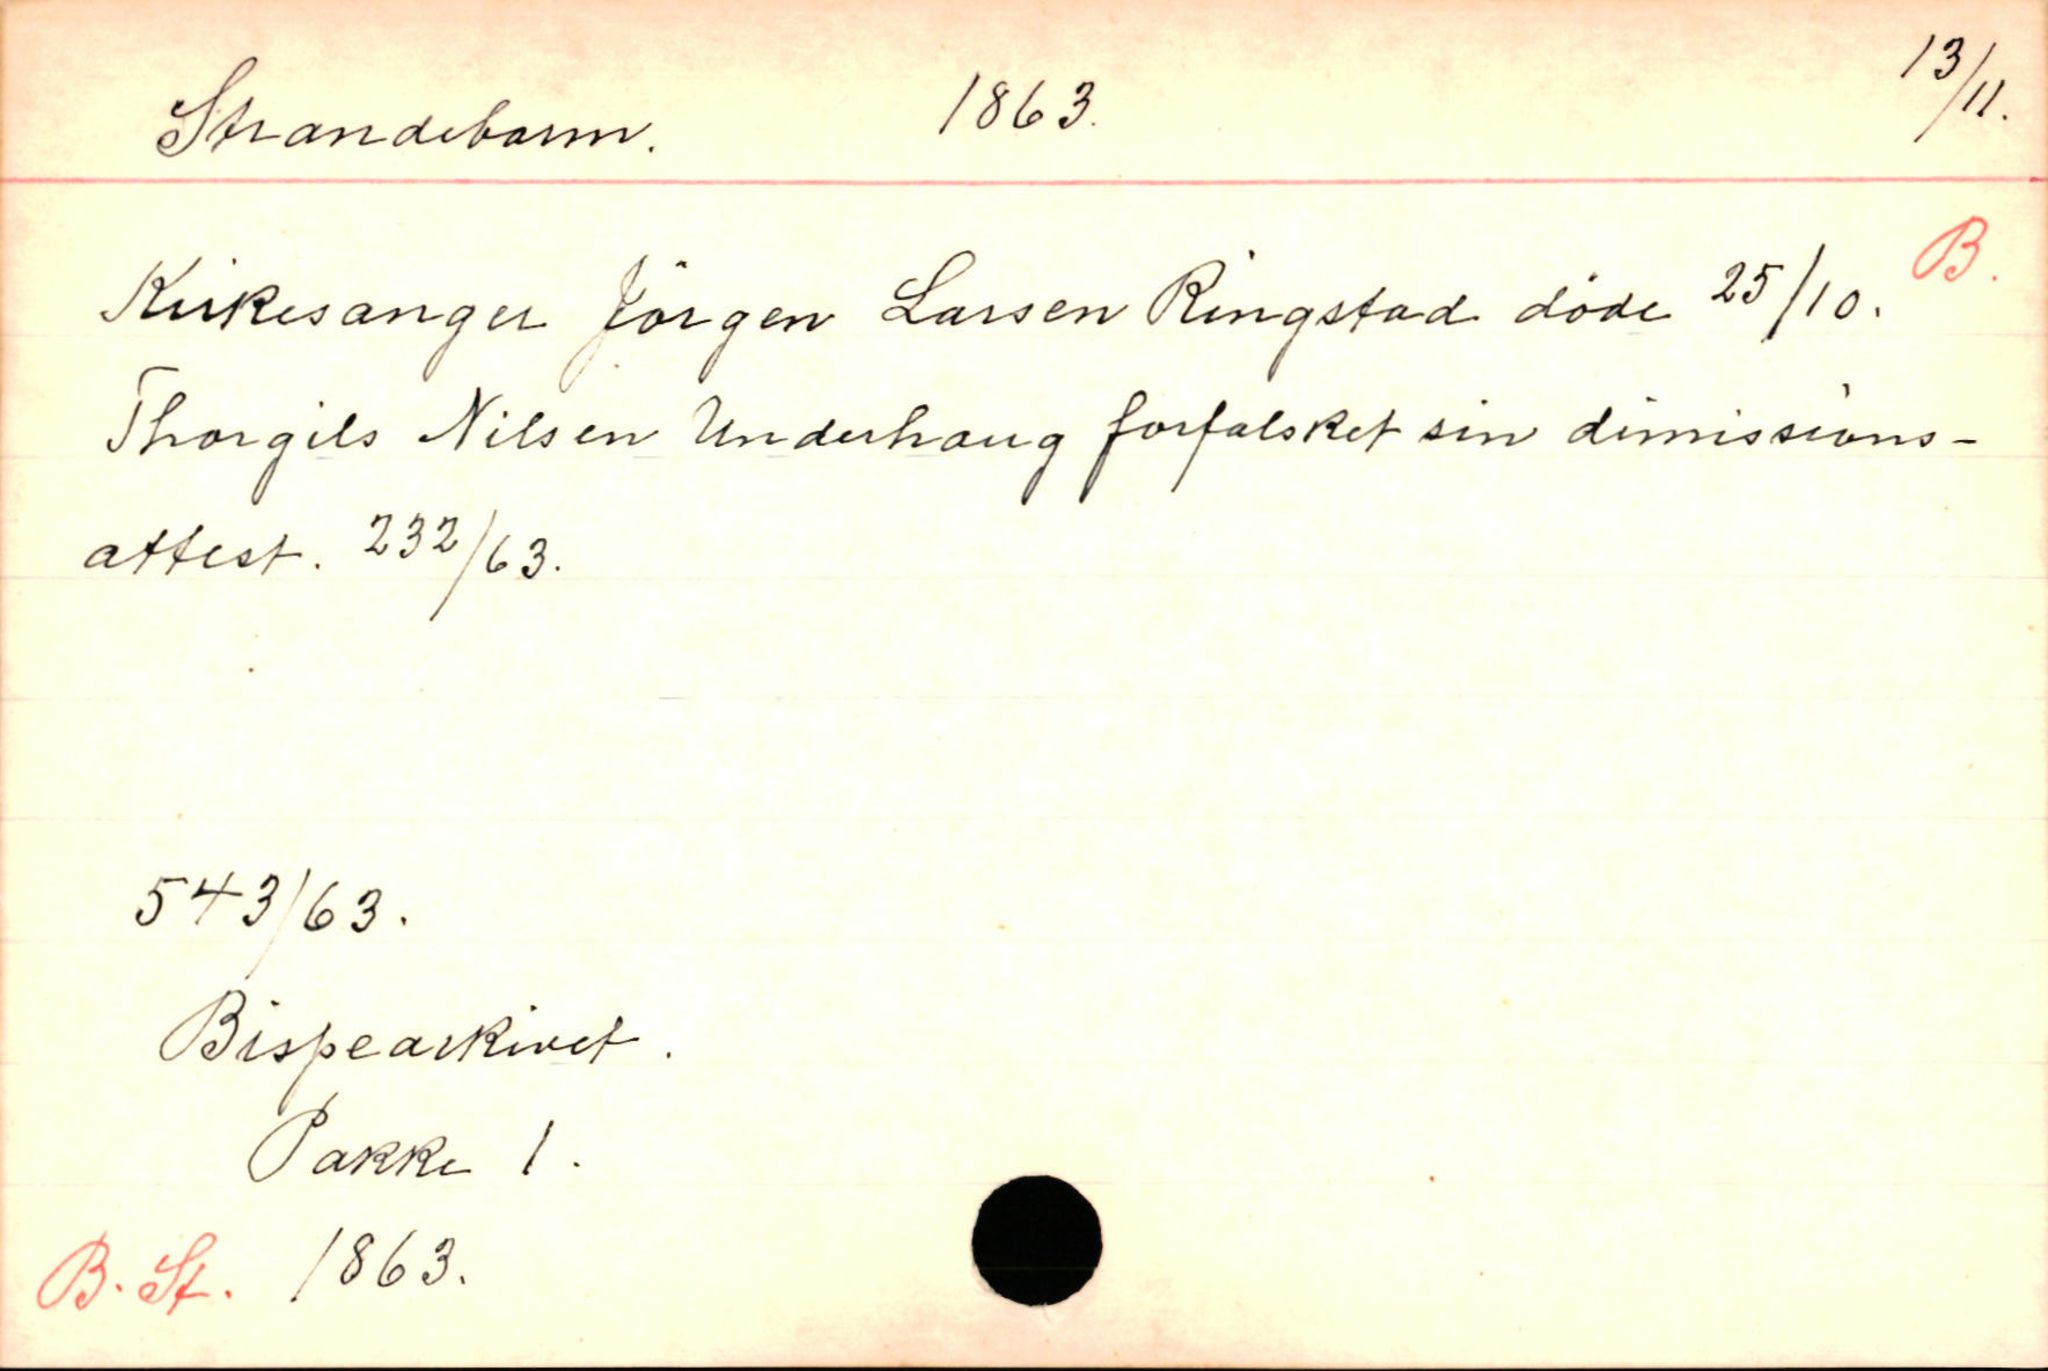 Strandebarm. 1863. 13/11.
B.
Kirkesanger Jörgen Larsen Ringstad döde 25/10.
Thorgils Nilsen Underhaug forfalsket sin dimissions-
attest. 232/63.
543/63.
Bispearkivet.
Pakke 1.
B. St. 1863.